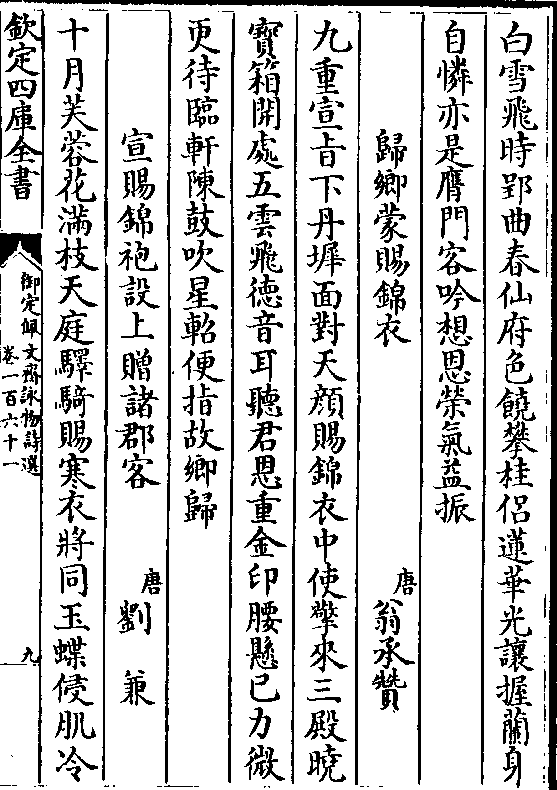 白雪飛時郢曲春仙府色饒攀桂侣蓮華光讓握蘭身
自憐亦是膺門客吟想恩榮氣益振
歸鄉蒙賜錦衣
唐 翁承贊
九重宣旨下丹墀面對天顔賜錦衣中使擎來三殿曉
寳箱開處五雲飛德音耳聽君恩重金印腰懸已力微
更待臨軒陳鼓吹星軺便指故鄉歸
宣賜錦袍設上贈諸郡客
唐 劉兼
十月芙蓉花滿枝天庭驛騎賜寒衣將同玉蝶侵肌冷
欽定四庫全書
御定佩文齋詠物詩選
卷一百六十一
九